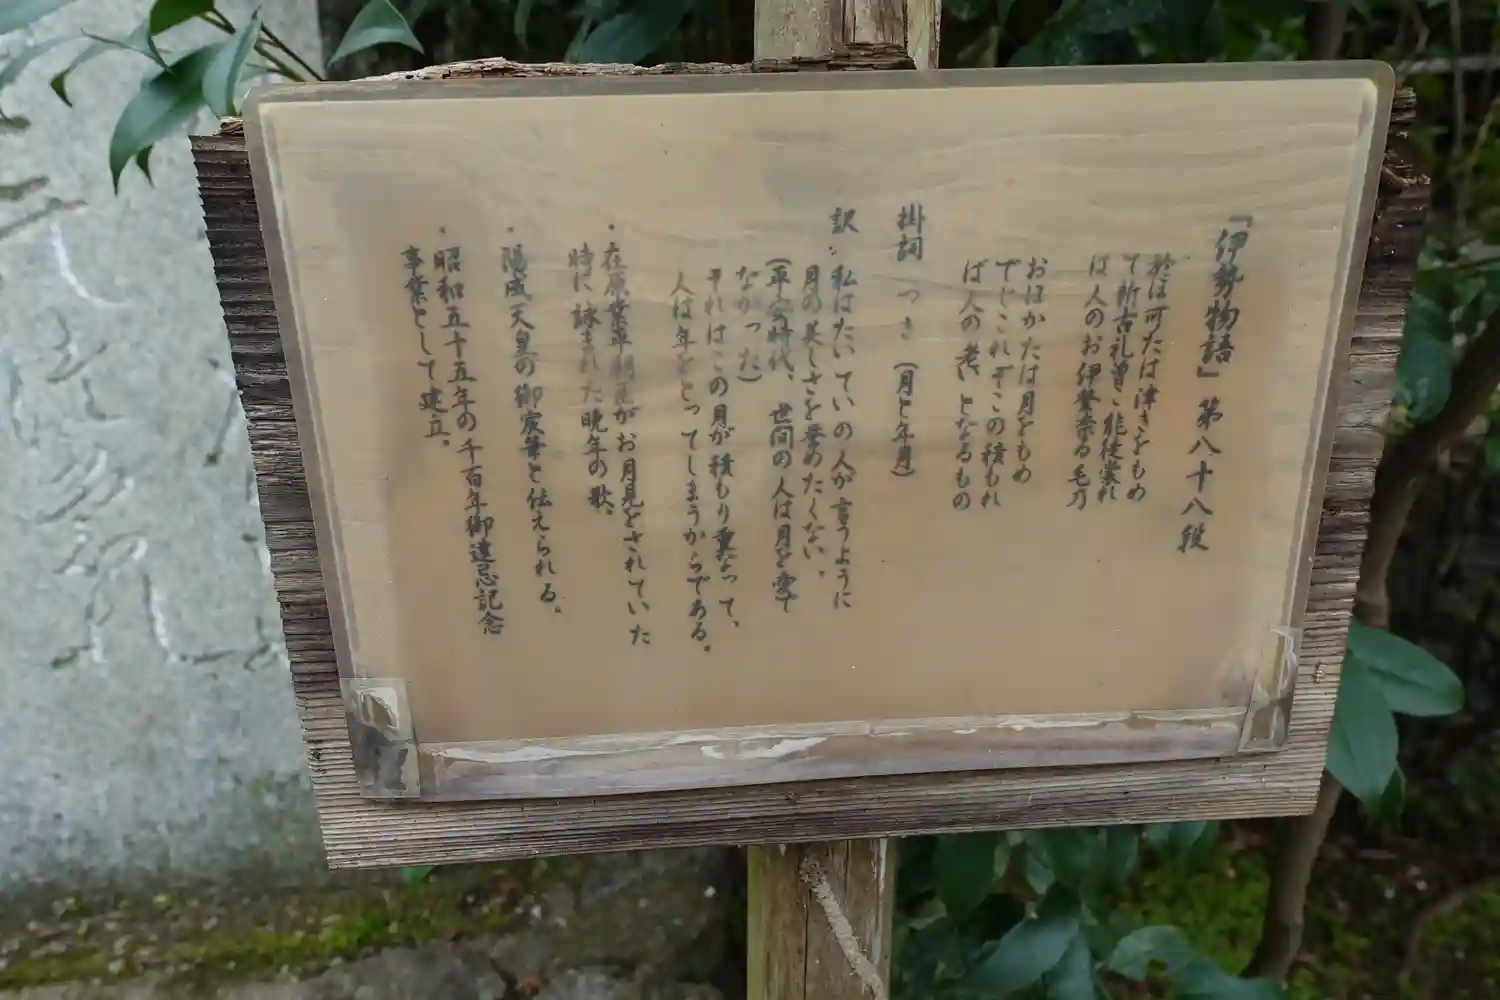 『伊勢物語』第八十八段
於ほ可たは津きをもめ
て新古礼曽こ能徒裳れ
は人のお伊登奈る毛乃
おほかたは月をもめ
でじこれぞこの積もれ
ば人の老いとなるもの
掛詞 つき(月と年月)
訳:私はたいていの人が言うように
月の美しさを誉めたくない。
(平安時代、世間の人は月を愛で
なかった)
それはこの月が積もり重なって、
人は年をとってしまうからである。
・在原業平朝臣がお月見をされていた
時に詠まれた晩年の歌。
・陽成天皇の御宸筆と伝えられる。
・昭和五十五年の千百年御遠忌記念
事業として建立。